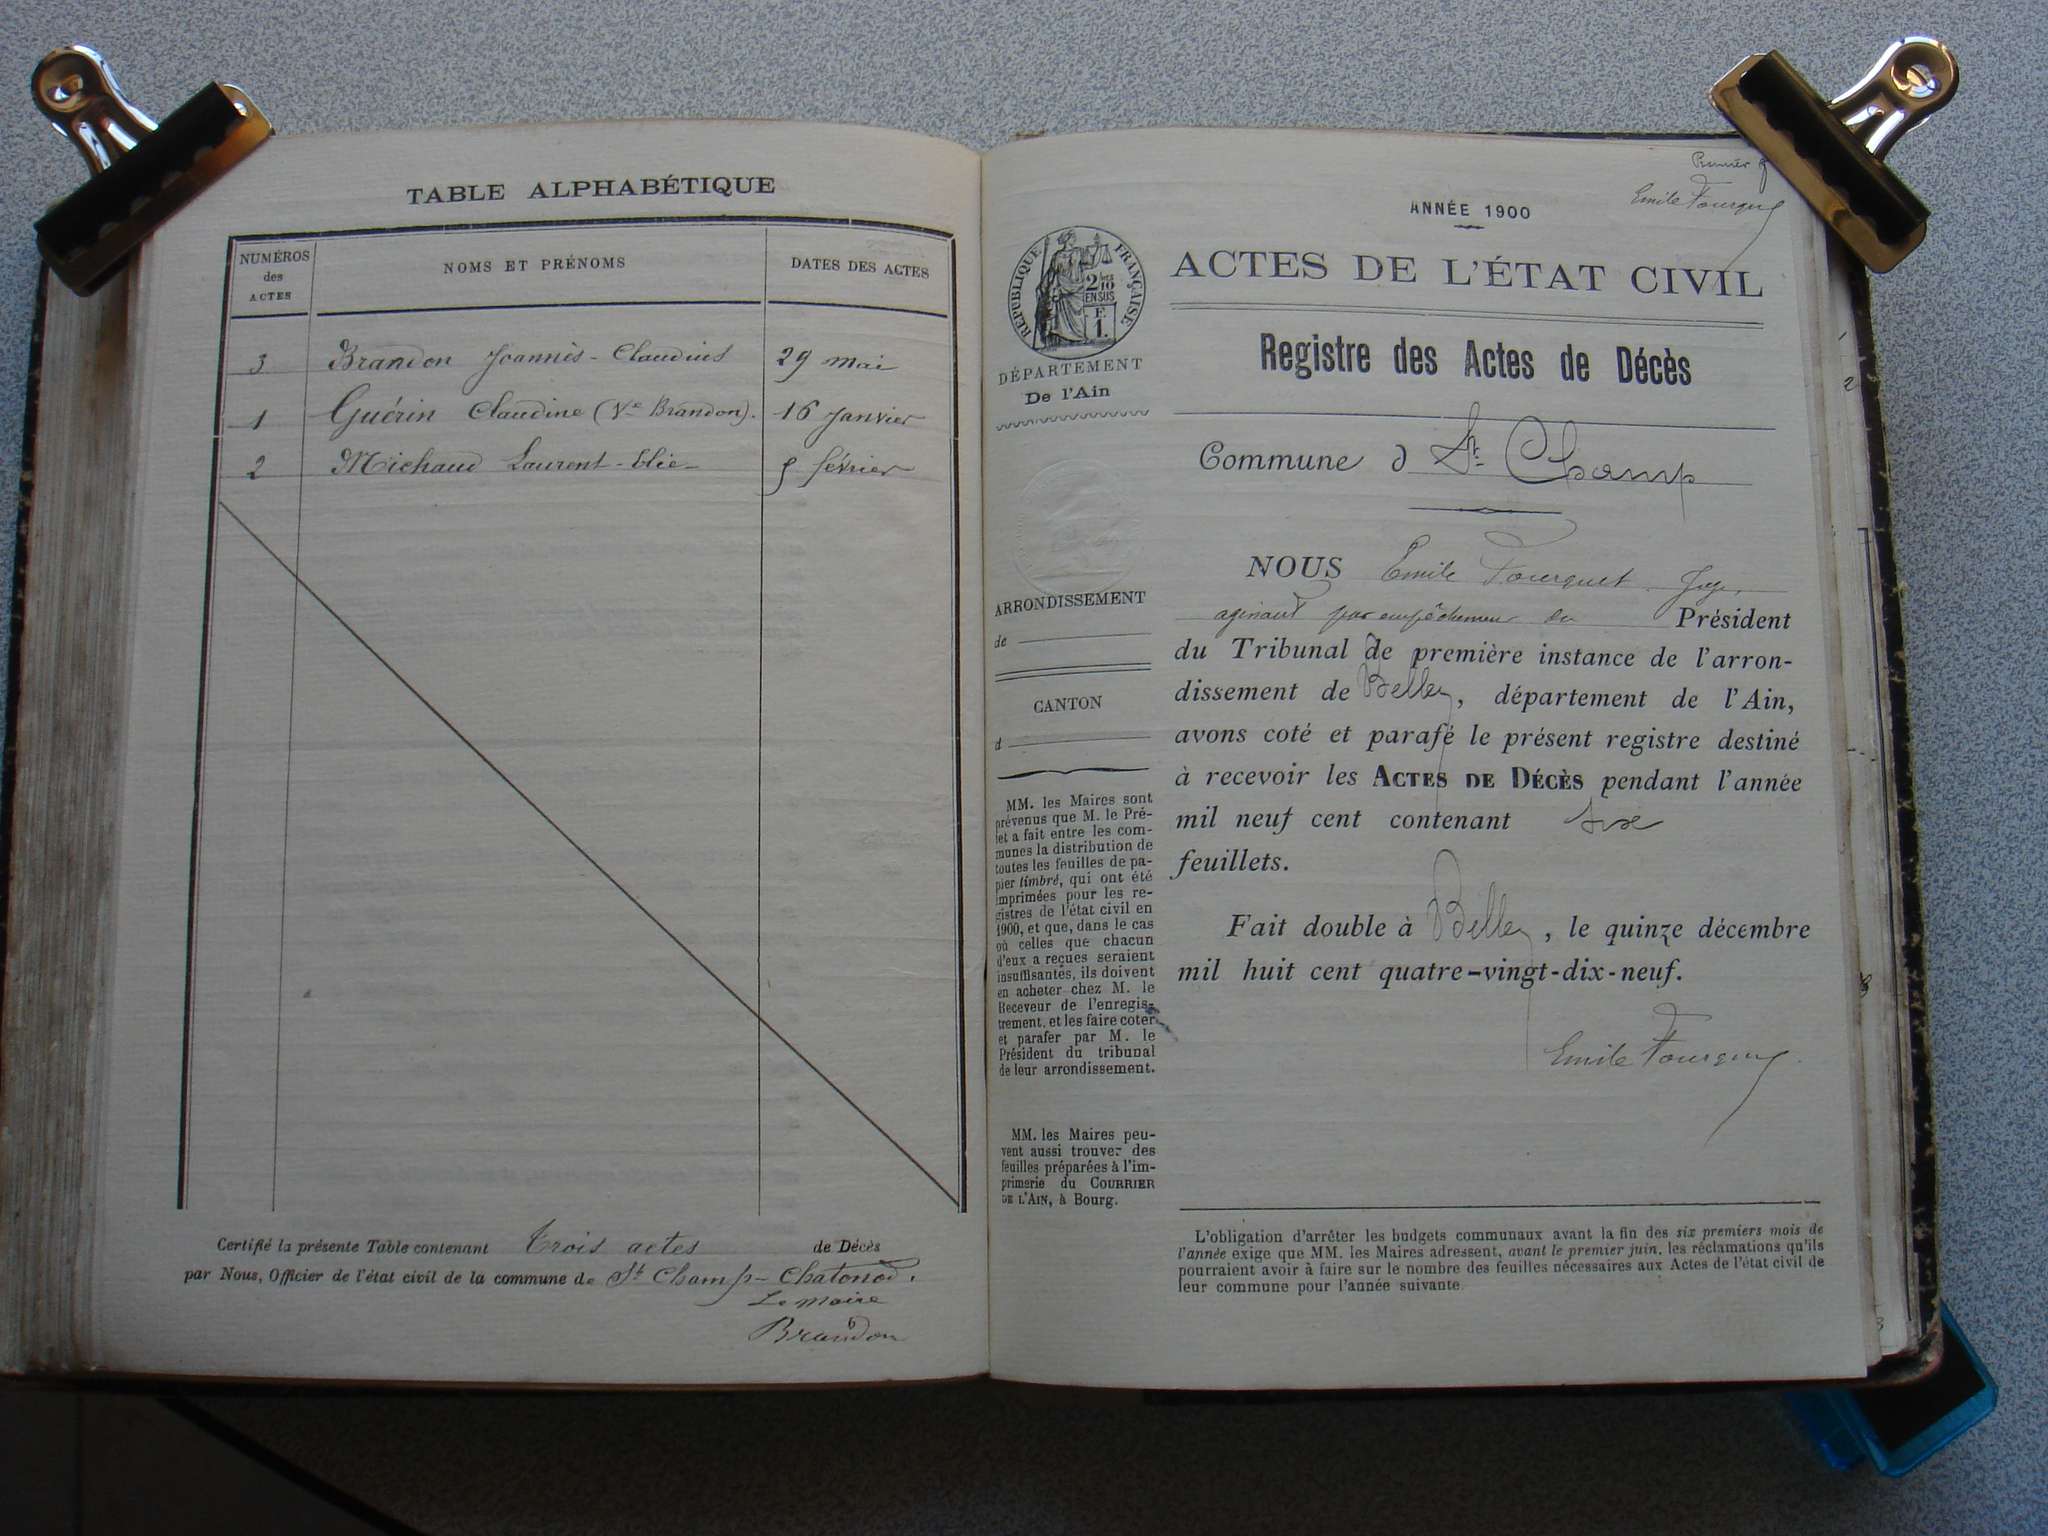 TABLE ALPHABÉTIQUE
NUMÉROS des ACTES
NOMS ET PRÉNOMS
DATES DES ACTES
3 Brandon Joannès-Claudius 29 mai
1 Guérin Claudine (Ve Brandon). 16 Janvier
2 Michaud Laurent-Elie 5 février
Certifié la présente Table contenant trois actes de Décès
par Nous, Officier de l'état civil de la commune de St Champ-Chatonod.
Le Maire
Brandon
Premier
Emile Fourquet
ANNÉE 1900
ACTES DE L'ÉTAT CIVIL
Registre des Actes de Décès
Commune d St Champ
RÉPUBLIQUE FRANÇAISE
2/10 EN SUS
F. 1.
DÉPARTEMENT
De l'Ain
ARRONDISSEMENT
de
CANTON
d
MM. les Maires sont
prévenus que M. le Pré-
fet a fait entre les com-
munes la distribution de
toutes les feuilles de pa-
pier timbré, qui ont été
imprimées pour les re-
gistres de l'état civil en
1900, et que, dans le cas
où celles que chacun
d'eux a reçues seraient
insuffisantes, ils doivent
en acheter chez M. le
Receveur de l'enregis-
trement, et les faire coter
et parafer par M. le
Président du tribunal
de leur arrondissement.
MM. les Maires peu-
vent aussi trouver des
feuilles préparées à l'im-
primerie du COURRIER
DE L'AIN, à Bourg.
NOUS Emile Fourquet Juge,
agissant par empêchement du Président
du Tribunal de première instance de l'arron-
dissement de Belley, département de l'Ain,
avons coté et parafé le présent registre destiné
à recevoir les ACTES DE DÉCÈS pendant l'année
mil neuf cent contenant six
feuillets.
Fait double à Belley, le quinze décembre
mil huit cent quatre-vingt-dix-neuf.
Emile Fourquet
L'obligation d'arrêter les budgets communaux avant la fin des six premiers mois de
l'année exige que MM. les Maires adressent, avant le premier juin, les réclamations qu'ils
pourraient avoir à faire sur le nombre des feuilles nécessaires aux Actes de l'état civil de
leur commune pour l'année suivante.